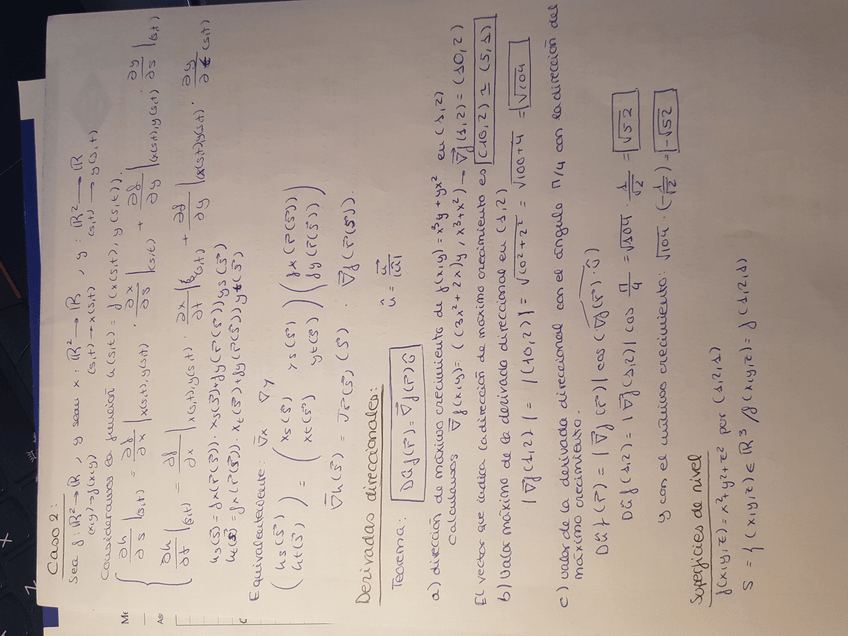 Caso 2:
Sea f: ℝ² → ℝ, y sean x: ℝ² → ℝ, y: ℝ² → ℝ
(x,y) → f(x,y) (s,t) → x(s,t) (s,t) → y(s,t)
Consideramos la función h(s,t) = f(x(s,t), y(s,t)).
∂h/∂s |(s,t) = ∂f/∂x |x(s,t), y(s,t) · ∂x/∂s |(s,t) + ∂f/∂y |(x(s,t), y(s,t)) ∂y/∂s |(s,t)
∂h/∂t |(s,t) = ∂f/∂x |x(s,t), y(s,t) · ∂x/∂t |(s,t) + ∂f/∂y |(x(s,t), y(s,t)) · ∂y/∂t (s,t)
hs(s⃗) = fx(r⃗(s⃗)) · xs(s⃗) + fy(r⃗(s⃗)) ys(s⃗)
ht(s⃗) = fx(r⃗(s⃗)) · xt(s⃗) + fy(r⃗(s⃗)) yt(s⃗)
Equivalentemente: ∇x ∇y
(hs(s⃗) ht(s⃗)) = (xs(s⃗) ys(s⃗) xt(s⃗) yt(s⃗)) (fx(r⃗(s⃗)) fy(r⃗(s⃗)))
∇h(s⃗) = Jr⃗(s⃗) (s⃗) · ∇f(r⃗(s⃗)).
Derivadas direccionales:
Teorema: Dûf(r⃗) = ∇f(r⃗) û û = u⃗/|u⃗|
a) dirección de máximo crecimiento de f(x,y) = x³y + yx² en (1,2)
Calculamos ∇f(x,y) = ((3x² + 2x)y, x³+x²) → ∇f(1,2) = (10,2)
El vector que indica la dirección de máximo crecimiento es (10,2) ≃ (5,1)
b) Valor máximo de la derivada direccional en (1,2)
|∇f(1,2)| = |(10,2)| = √10²+2² = √100+4 = √104
c) valor de la derivada direccional con el ángulo π/4 con la dirección del
máximo crecimiento.
Dûf(r⃗) = |∇f(r⃗)| cos(∇f(r⃗) · û)
Dûf(1,2) = |∇f(1,2)| cos π/4 = √104 · 1/√2 = √52
y con el mínimo crecimiento: √104 · (-1/√2) = -√52
Superficies de nivel
f(x,y,z) = x²+y²+z² por (1,2,1)
S = {(x,y,z) ∈ ℝ³ / f(x,y,z) = f(1,2,1)